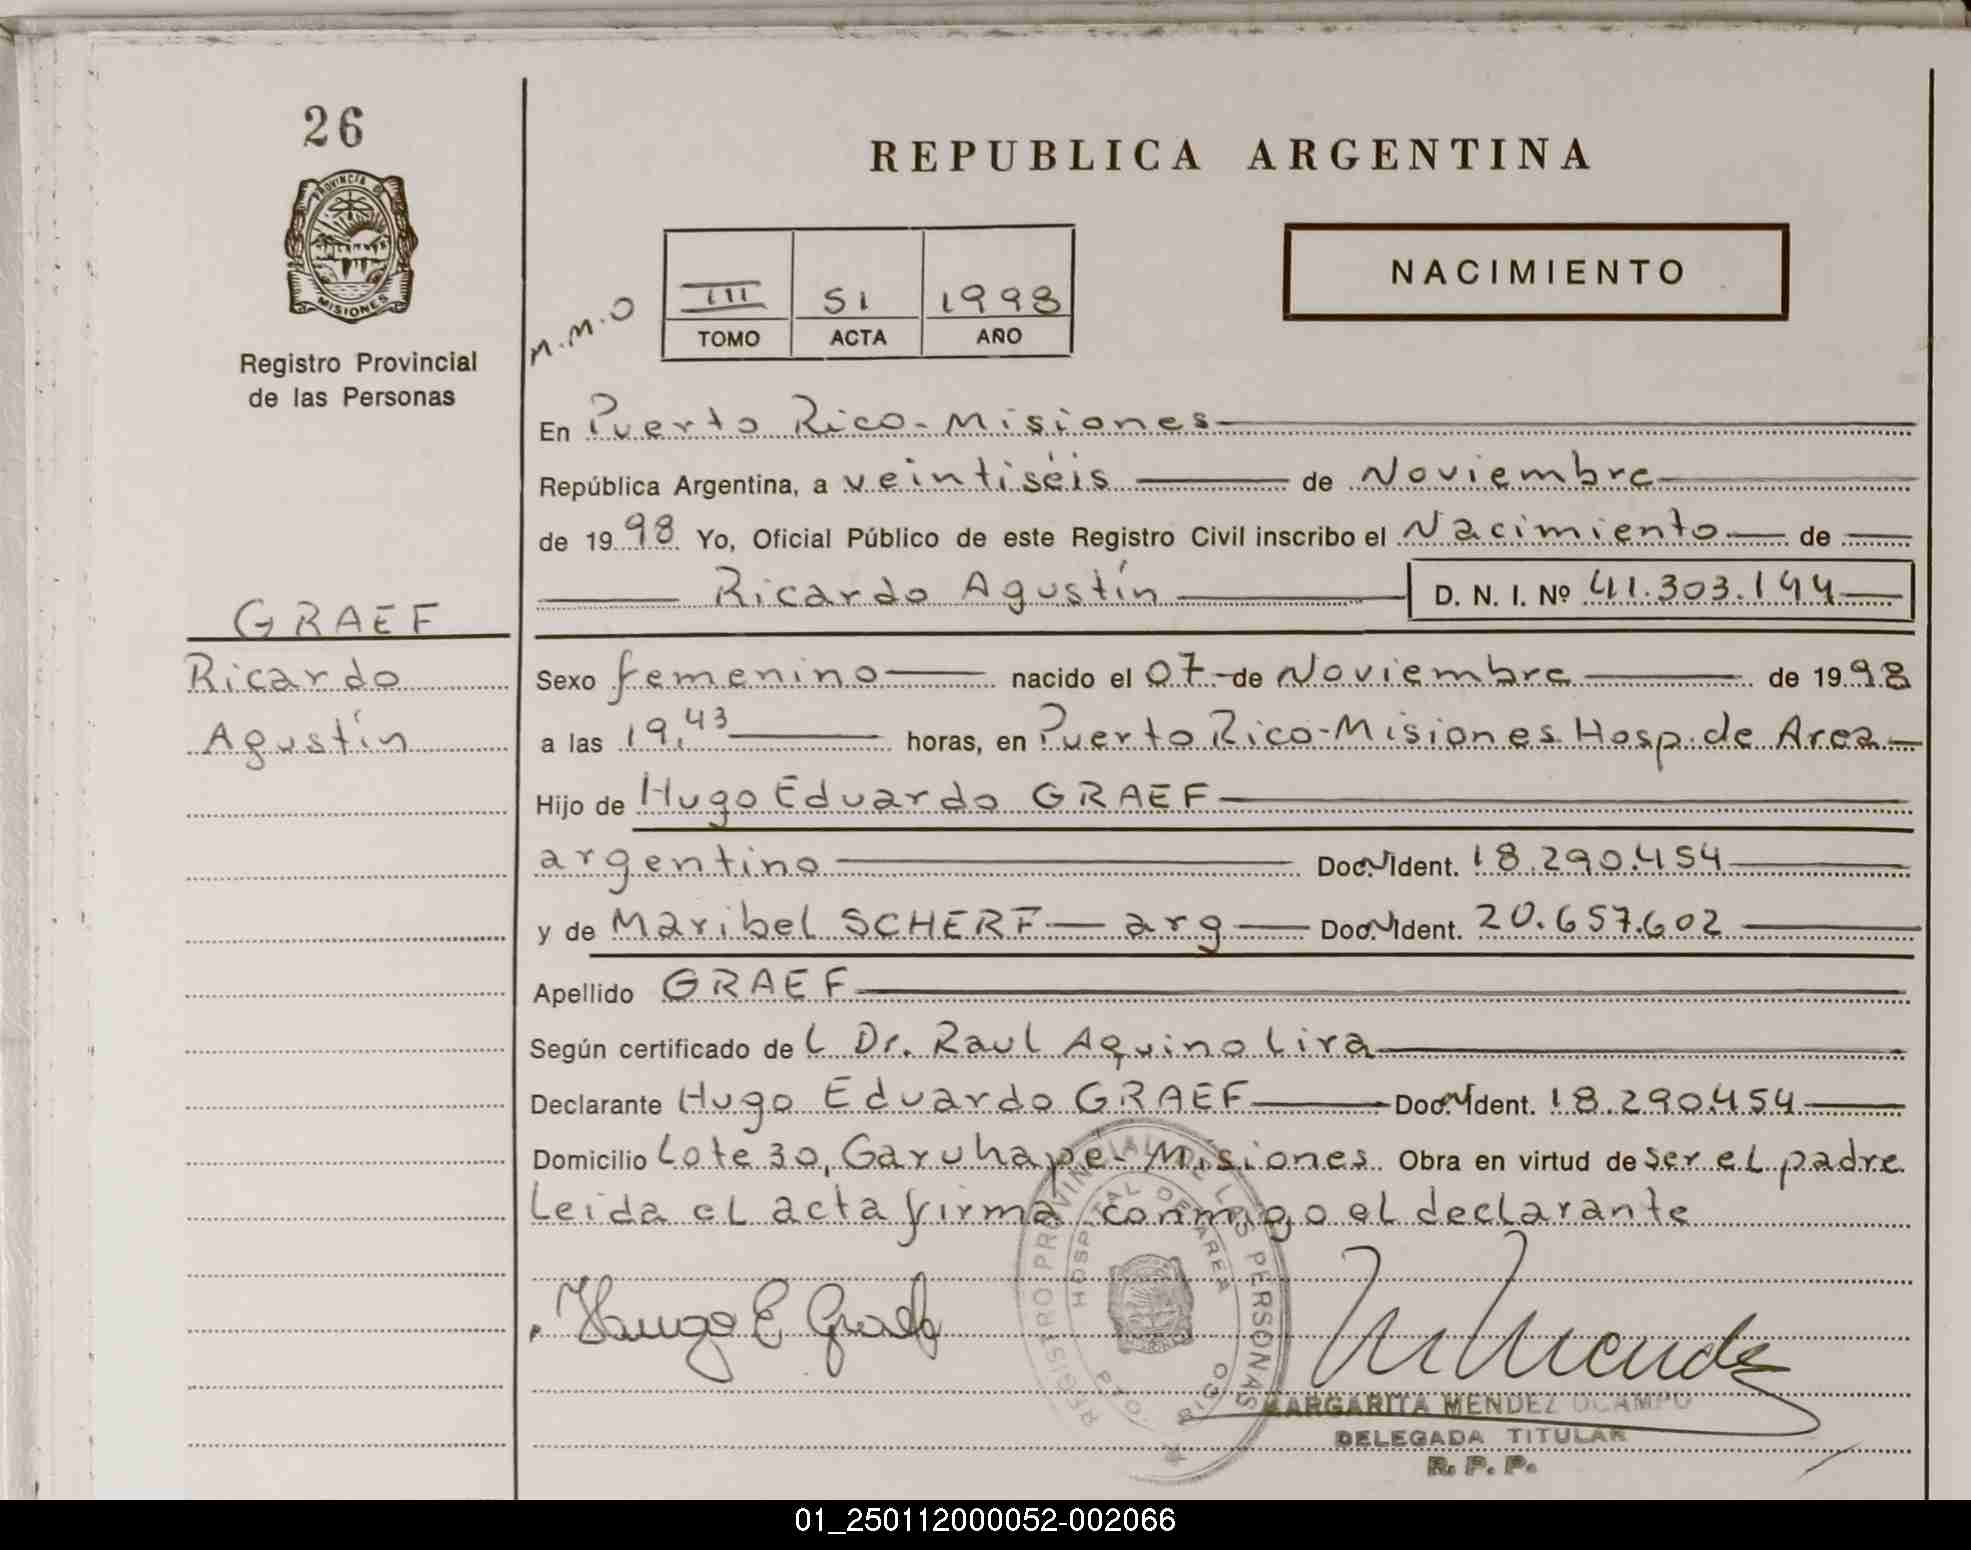 26
PROVINCIA DE
MISIONES
Registro Provincial
de las Personas
GRAEF
Ricardo
Agustín
REPUBLICA ARGENTINA
NACIMIENTO
M.M.O
III 51 1998
TOMO ACTA AÑO
En Puerto Rico - Misiones
República Argentina, a veintiséis de Noviembre
de 1998 Yo, Oficial Público de este Registro Civil inscribo el Nacimiento de
Ricardo Agustín D. N. I. Nº 41.303.144
Sexo femenino nacido el 07 de Noviembre de 1998
a las 19,43 horas, en Puerto Rico - Misiones Hosp. de Area
Hijo de Hugo Eduardo GRAEF
argentino Doc. Ident. 18.290.454
y de Maribel SCHERF arg Doc. Ident. 20.657.602
Apellido GRAEF
Según certificado de l Dr. Raul Aquino Lira
Declarante Hugo Eduardo GRAEF Doc. Ident. 18.290.454
Domicilio Lote 30, Garuhapé - Misiones Obra en virtud de ser el padre
Leida el acta firma conmigo el declarante
REGISTRO PROVINCIAL DE LAS PERSONAS
HOSPITAL DE AREA
PTO. RICO
Hugo E Graef
M Mendez
MARGARITA MENDEZ OCAMPO
DELEGADA TITULAR
R. P. P.
01_250112000052-002066